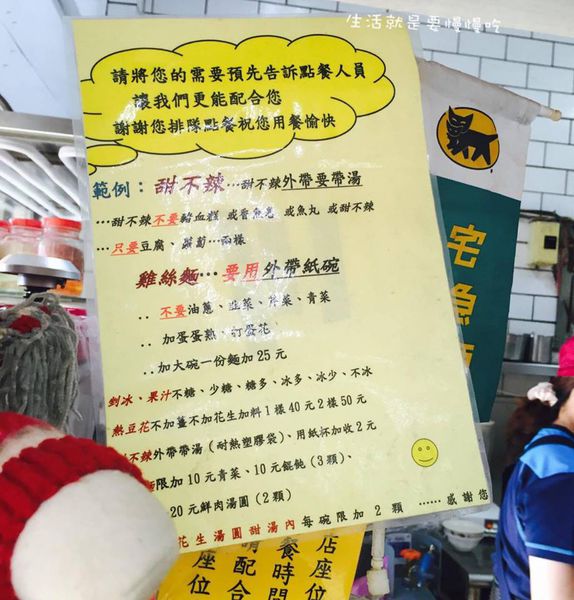 生活就是要慢慢吃
請將您的需要預先告訴點餐人員
讓我們更能配合您
謝謝您排隊點餐祝您用餐愉快
範例：甜不辣…甜不辣外帶要帶湯
…甜不辣不要豬血糕 或香魚卷 或魚丸 或甜不辣
…只要豆腐、蘿蔔…兩樣
雞絲麵…要用外帶紙碗
..不要油蔥、韭菜、芹菜、青菜
..加蛋蛋熟、打蛋花
..加大碗一份麵加25元
剉冰、果汁不糖、少糖、糖多、冰多、冰少、不冰
熱豆花不加薑不加花生加料1樣40元2樣50元
不辣外帶帶湯（耐熱塑膠袋）、用紙杯加收2元
限加10元青菜、10元餛飩（3顆）、
20元鮮肉湯圓（2顆）
花生湯圓甜湯內每碗限加2顆……感謝您
宅急
店座位
餐時間
配合
座位